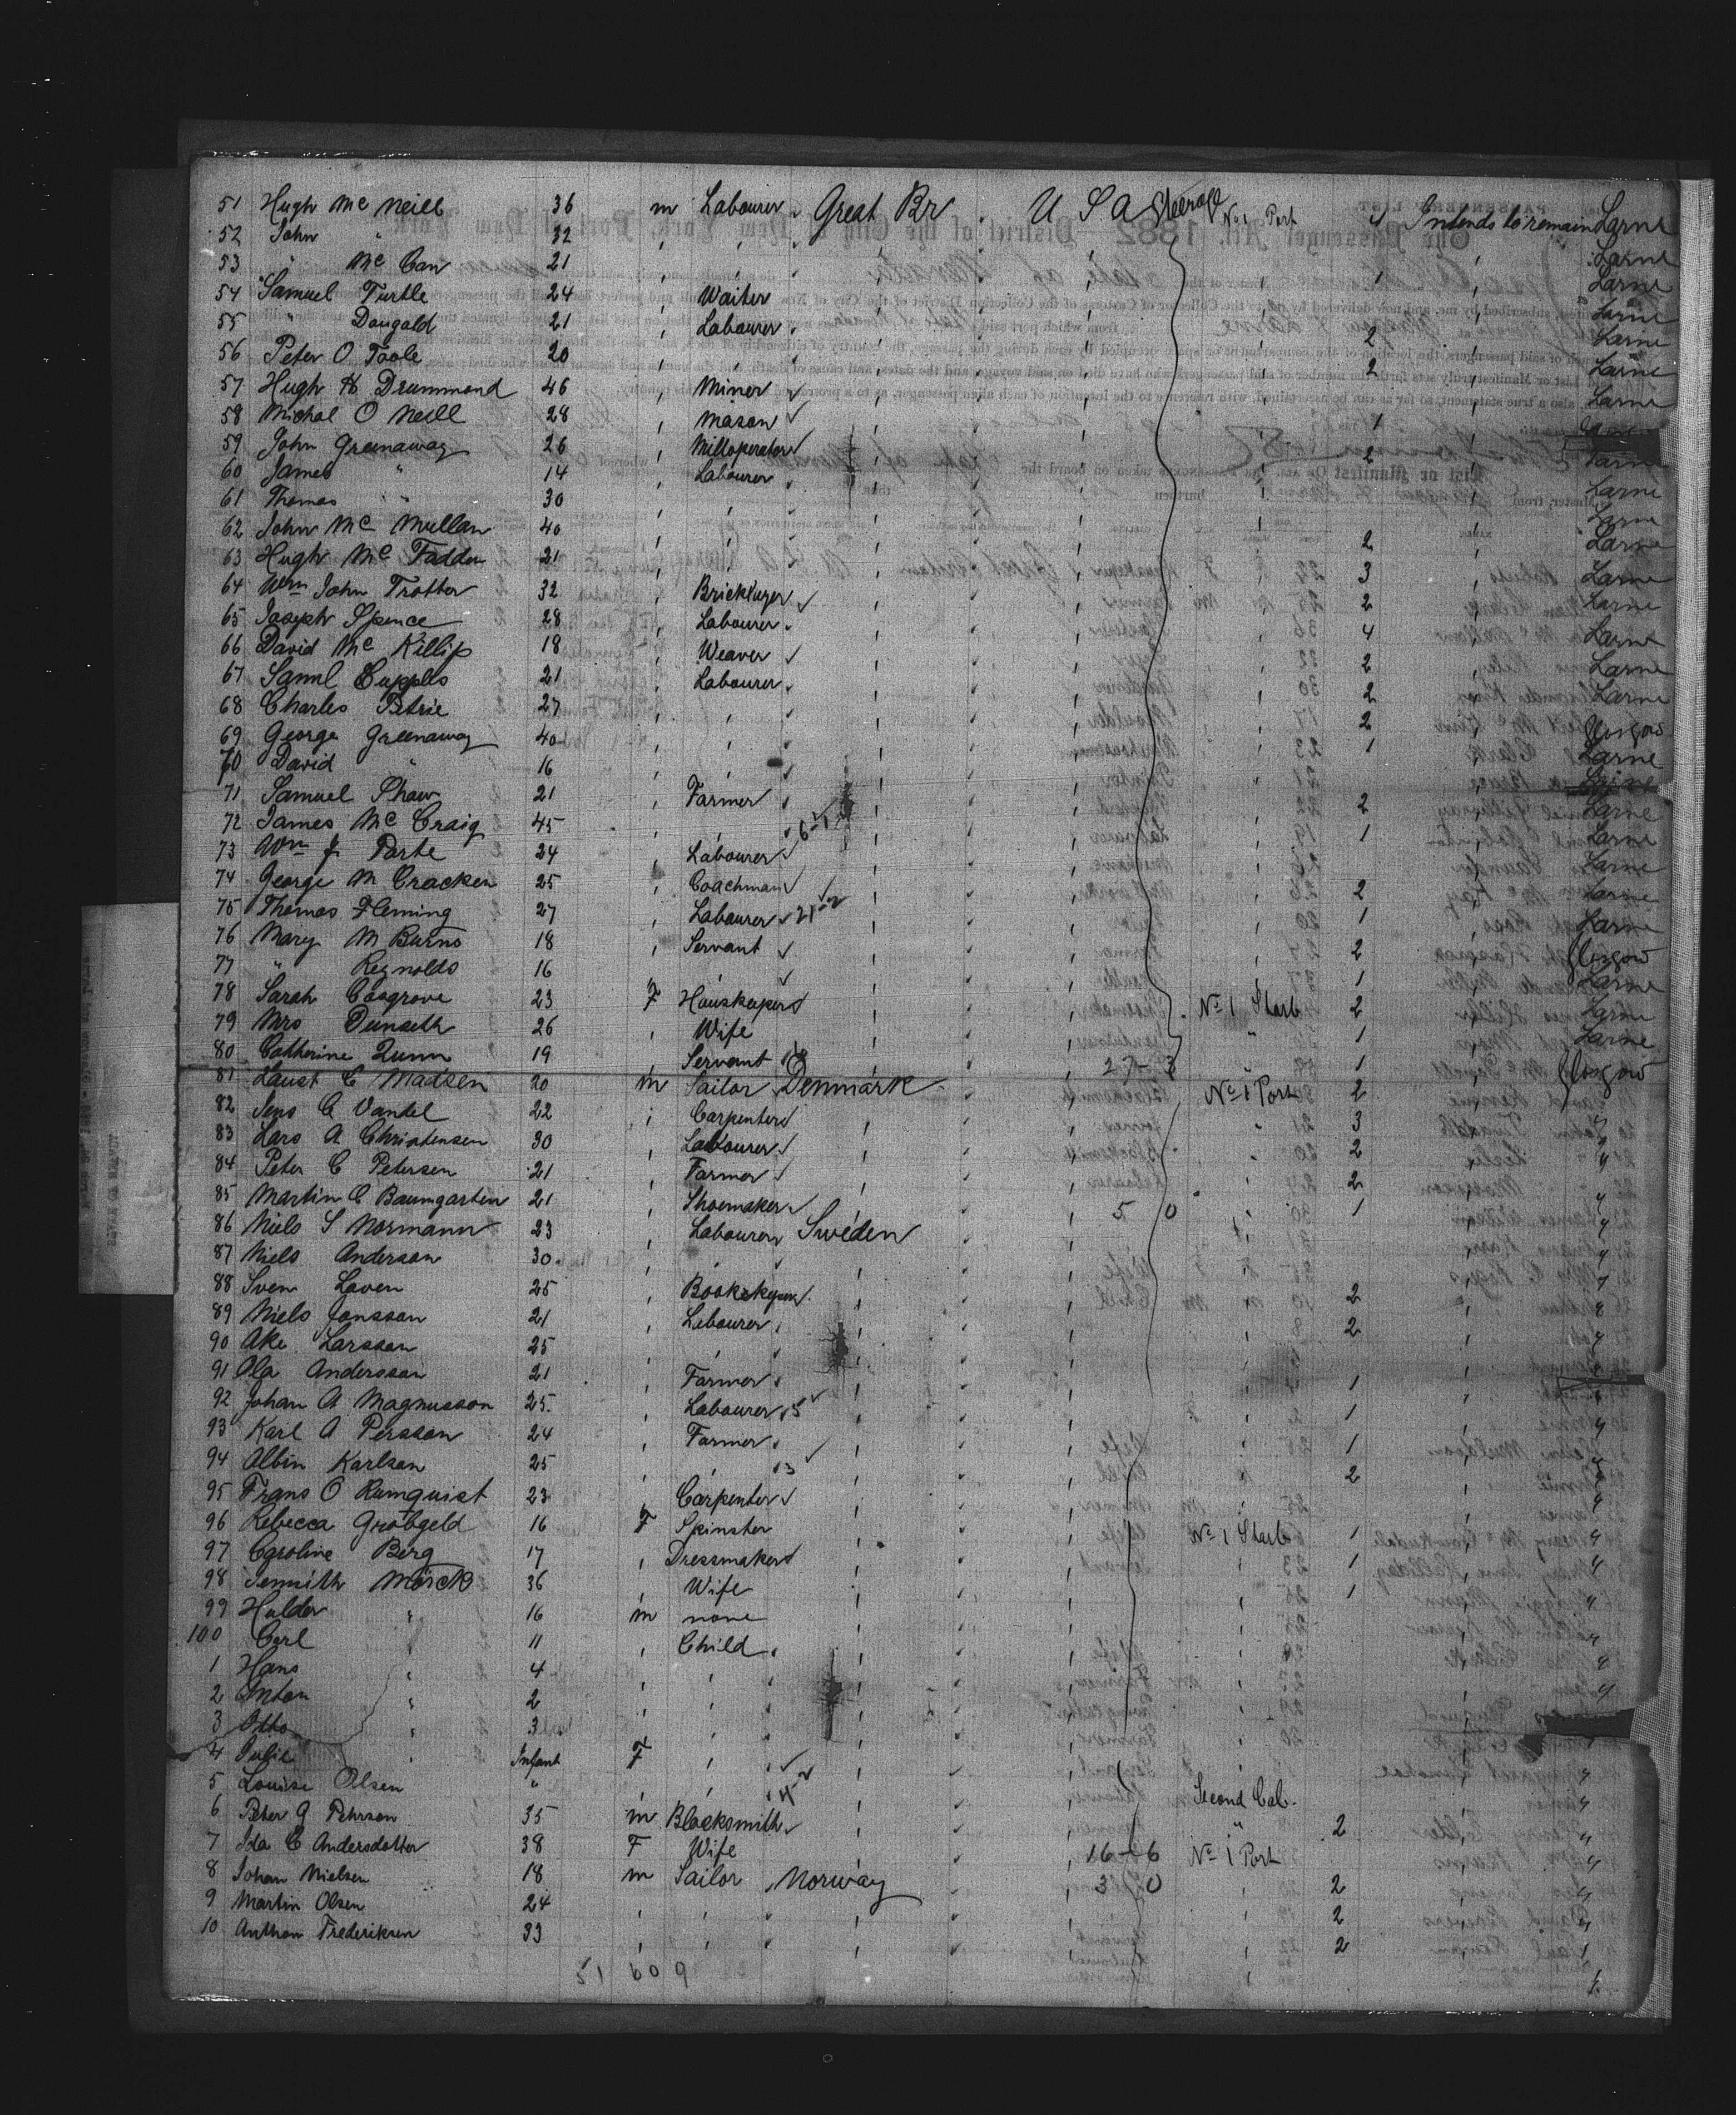 51 Hugh Mc Neill 36 m Labourer Great Br U S A Steerage No 1 Port 4 Intends to remain Larne
52 John " 32 Larne
53 " Mc Can 21 1 Larne
54 Samuel Turtle 24 Waiter Larne
55 " Dougald 21 Labourer 2 Larne
56 Peter O Toole 20 2 Larne
57 Hugh H Drummond 46 Miner Larne
58 Michal O Neill 28 Mason 1
59 John Greenaway 26 Milloperator 2 Larne
60 James " 14 Labourer Larne
61 Thomas " 30 Larne
62 John Mc Mullan 40 2 Larne
63 Hugh Mc Fadden 21 3 Larne
64 Wm John Trotter 32 Bricklayer 2 Larne
65 Joseph Spence 28 Labourer 4 Larne
66 David Mc Killip 18 Weaver 2 Larne
67 Saml Cupples 21 Labourer 2 Larne
68 Charles Petrie 27 2 Glasgow
69 George Greenaway 40 1 Larne
70 David " 16
71 Samuel Shaw 21 Farmer 2 Larne
72 James Mc Craig 45 6-1 1 Larne
73 Wm J Parte 24 Labourer Larne
74 George M Cracken 25 Coachman 2 Larne
75 Thomas Fleming 27 Labourer 21-2 1 Larne
76 Mary M Burns 18 Servant 2 Glasgow
77 " Reynolds 16 1 Larne
78 Sarah Cosgrove 23 F Houskeeper No 1 Starb 2 Larne
79 Mrs Dunseith 26 Wife " 1 Larne
80 Catherine Quinn 19 Servant 27-3 1 Glasgow
81 Laust C Madsen 20 m Sailor Denmark No 1 Port 2
82 Jens C Vandel 22 Carpenter 3 "
83 Lars A Christensen 30 Labourer 2 "
84 Peter C Petersen 21 Farmer 2
85 Martin C Baumgarten 21 Shoemaker 5 0 1 "
86 Niels S Normann 23 Labourer Sweden "
87 Niels Anderson 30 "
88 Sven Loven 25 Bookekeper 2 "
89 Niels Jonsson 21 Labourer 2 "
90 Ake Larsson 25 "
91 Ola Andersson 21 Farmer 1 "
92 Johan A Magnusson 25 Labourer 15 1 "
93 Karl A Persson 24 Farmer 1 "
94 Albin Karlson 25 13 2 "
95 Frans O Rumquist 23 Carpenter "
96 Rebecca Grobgeld 16 F Spinster No 1 Starb 1 "
97 Caroline Berg 17 Dressmaker 1 "
98 Mörck 36 Wife 1 "
99 Hulder " 16 m none "
100 Carl " 11 Child "
1 Hans " 4 "
2 Anton " 2
3 Otto " 3
4 Julie " Infant F
5 Louise Olsen " Second Cab. "
6 Peter G Pehrson 35 m Blacksmith " 2 "
7 Ida C Andersdotter 38 F Wife 16-6 No 1 Port "
8 Johan Nielsen 18 m Sailor Norway 3 0 2 "
9 Martin Olsen 24 2 "
10 Anthon Frederiksen 33 2
51 60 9